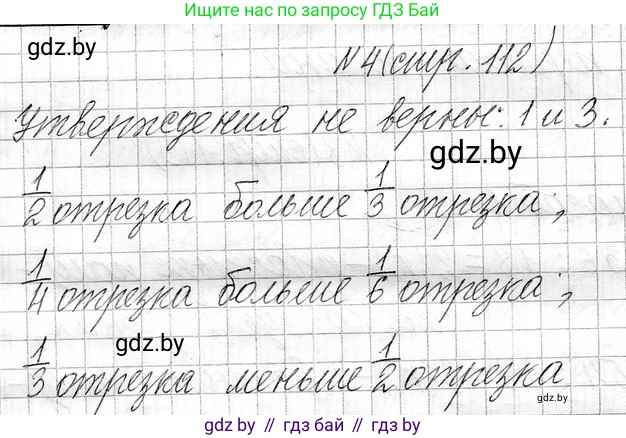 Ищите нас по запросу ГДЗ Бай
gdz.by
№4 (стр. 112)
Утверждения не верны: 1 и 3.
gdz.by
1/2 отрезка больше 1/3 отрезка;
1/4 отрезка больше 1/6 отрезка;
gdz.by
1/3 отрезка меньше 1/2 отрезка
gdz.by
gdz.by // гдз бай // gdz.by